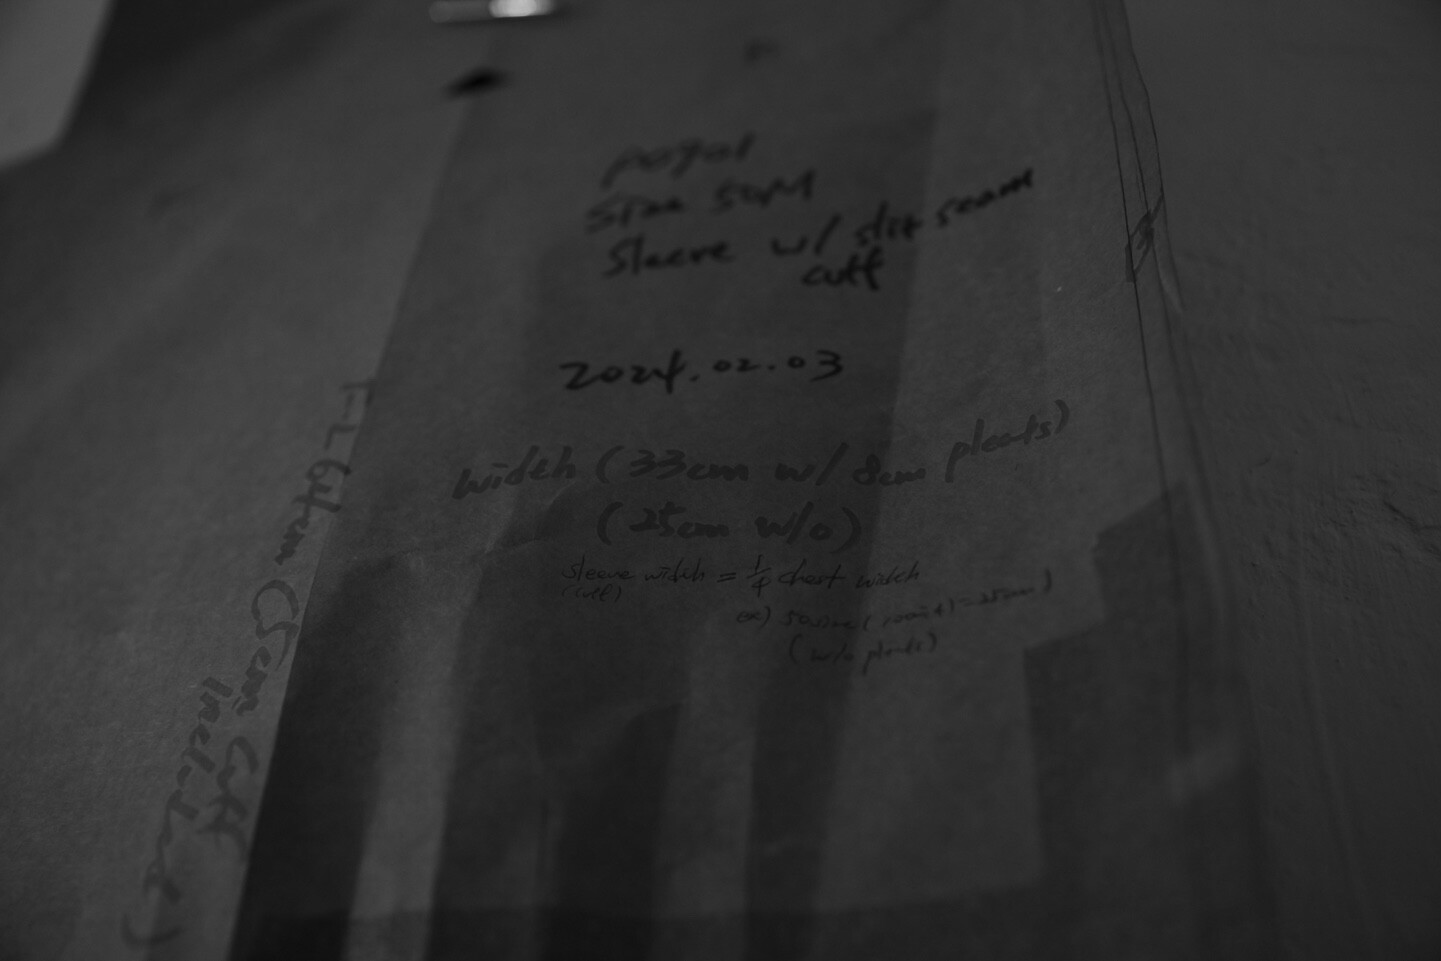 Sleeve w/ slit seam
cuff
2024.02.03
width (33cm w/ 8cm pleats)
(25cm w/o)
sleeve width = 1/4 chest width
(cuff)
ex) 50size (
(w/o pleats)
64cm (5cm cuff
included)